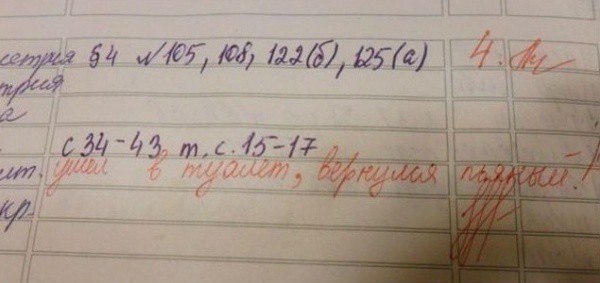 етрия §4 №105, 108, 122(б), 125(а) 4.
трия
а
с 34-43, т. с. 15-17
ит. ушел в туалет, вернулся пьяный!
кр.